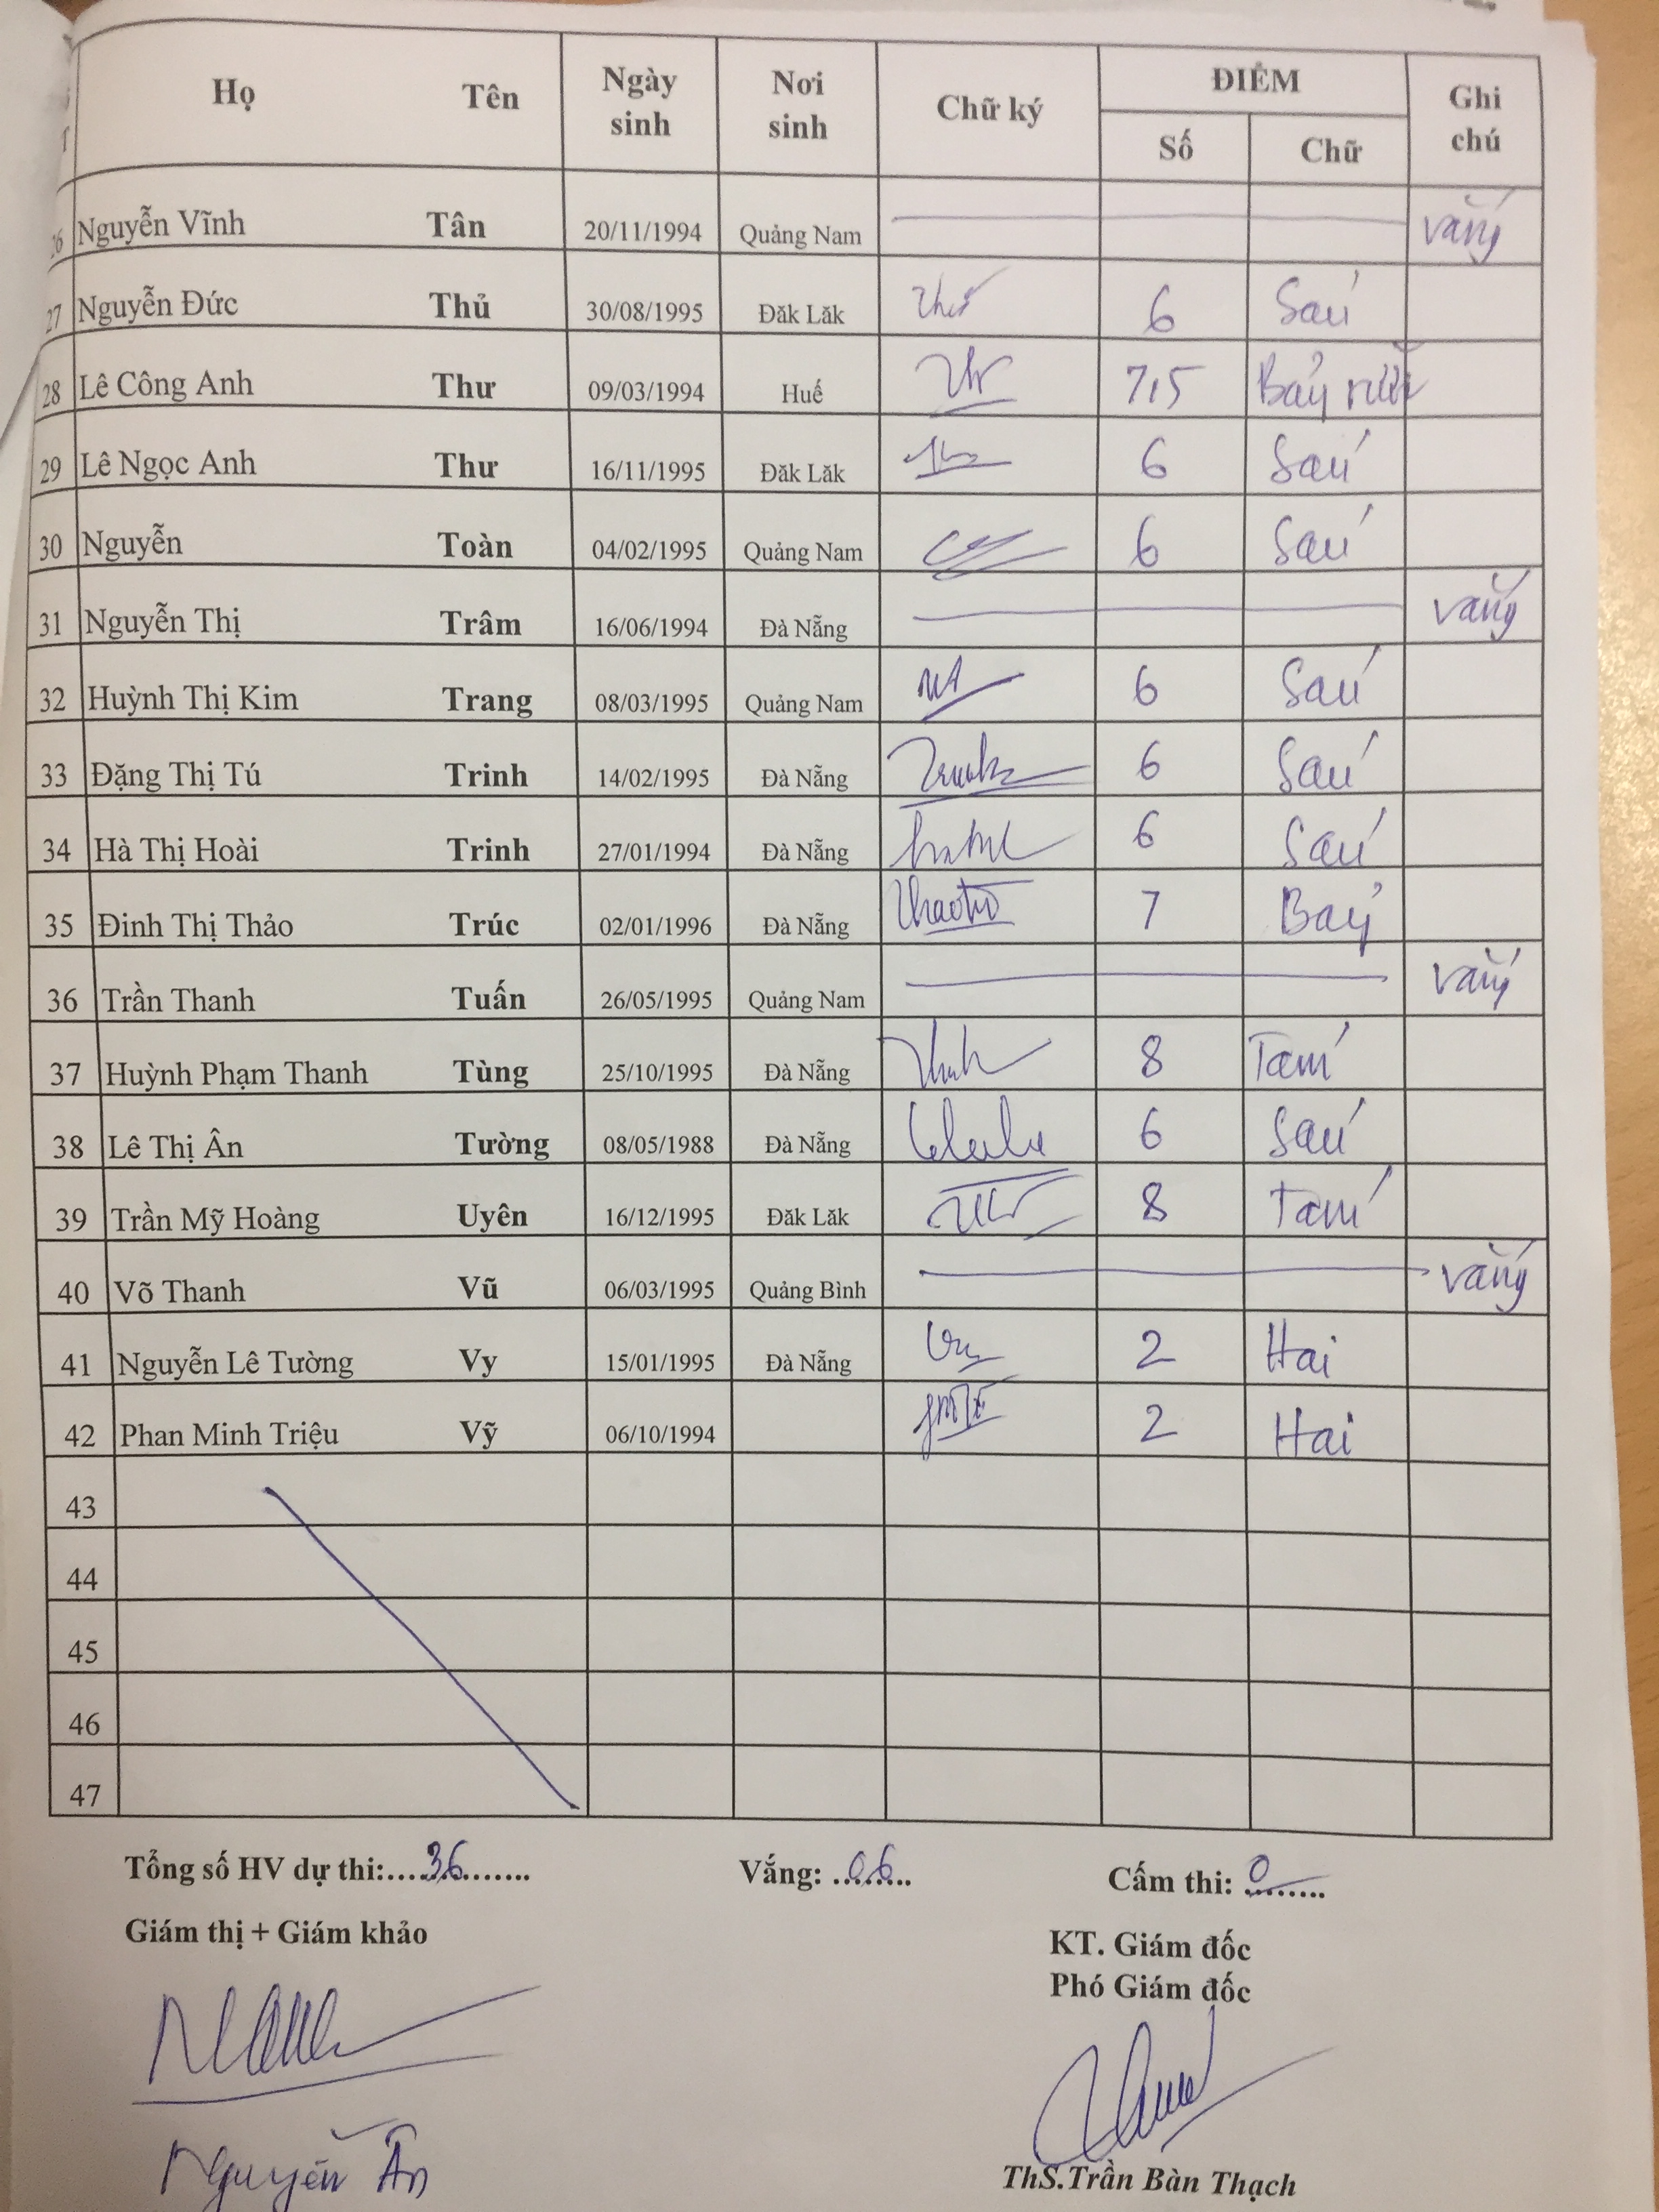 Họ Tên Ngày sinh Nơi sinh Chữ ký ĐIỂM Ghi chú
Số Chữ
26 Nguyễn Vĩnh Tân 20/11/1994 Quảng Nam vắng
27 Nguyễn Đức Thủ 30/08/1995 Đăk Lăk 6 Sáu
28 Lê Công Anh Thư 09/03/1994 Huế 7,5 Bảy rưỡi
29 Lê Ngọc Anh Thư 16/11/1995 Đăk Lăk 6 Sáu
30 Nguyễn Toàn 04/02/1995 Quảng Nam 6 Sáu
31 Nguyễn Thị Trâm 16/06/1994 Đà Nẵng vắng
32 Huỳnh Thị Kim Trang 08/03/1995 Quảng Nam 6 Sáu
33 Đặng Thị Tú Trinh 14/02/1995 Đà Nẵng 6 Sáu
34 Hà Thị Hoài Trinh 27/01/1994 Đà Nẵng 6 Sáu
35 Đinh Thị Thảo Trúc 02/01/1996 Đà Nẵng 7 Bảy
36 Trần Thanh Tuấn 26/05/1995 Quảng Nam vắng
37 Huỳnh Phạm Thanh Tùng 25/10/1995 Đà Nẵng 8 Tám
38 Lê Thị Ân Tường 08/05/1988 Đà Nẵng 6 Sáu
39 Trần Mỹ Hoàng Uyên 16/12/1995 Đăk Lăk 8 Tám
40 Võ Thanh Vũ 06/03/1995 Quảng Bình vắng
41 Nguyễn Lê Tường Vy 15/01/1995 Đà Nẵng 2 Hai
42 Phan Minh Triệu Vỹ 06/10/1994 2 Hai
43
44
45
46
47
Tổng số HV dự thi:....36........ Vắng: ..06.. Cấm thi: 0........
Giám thị + Giám khảo KT. Giám đốc
Phó Giám đốc
Nguyễn Ân ThS.Trần Bàn Thạch